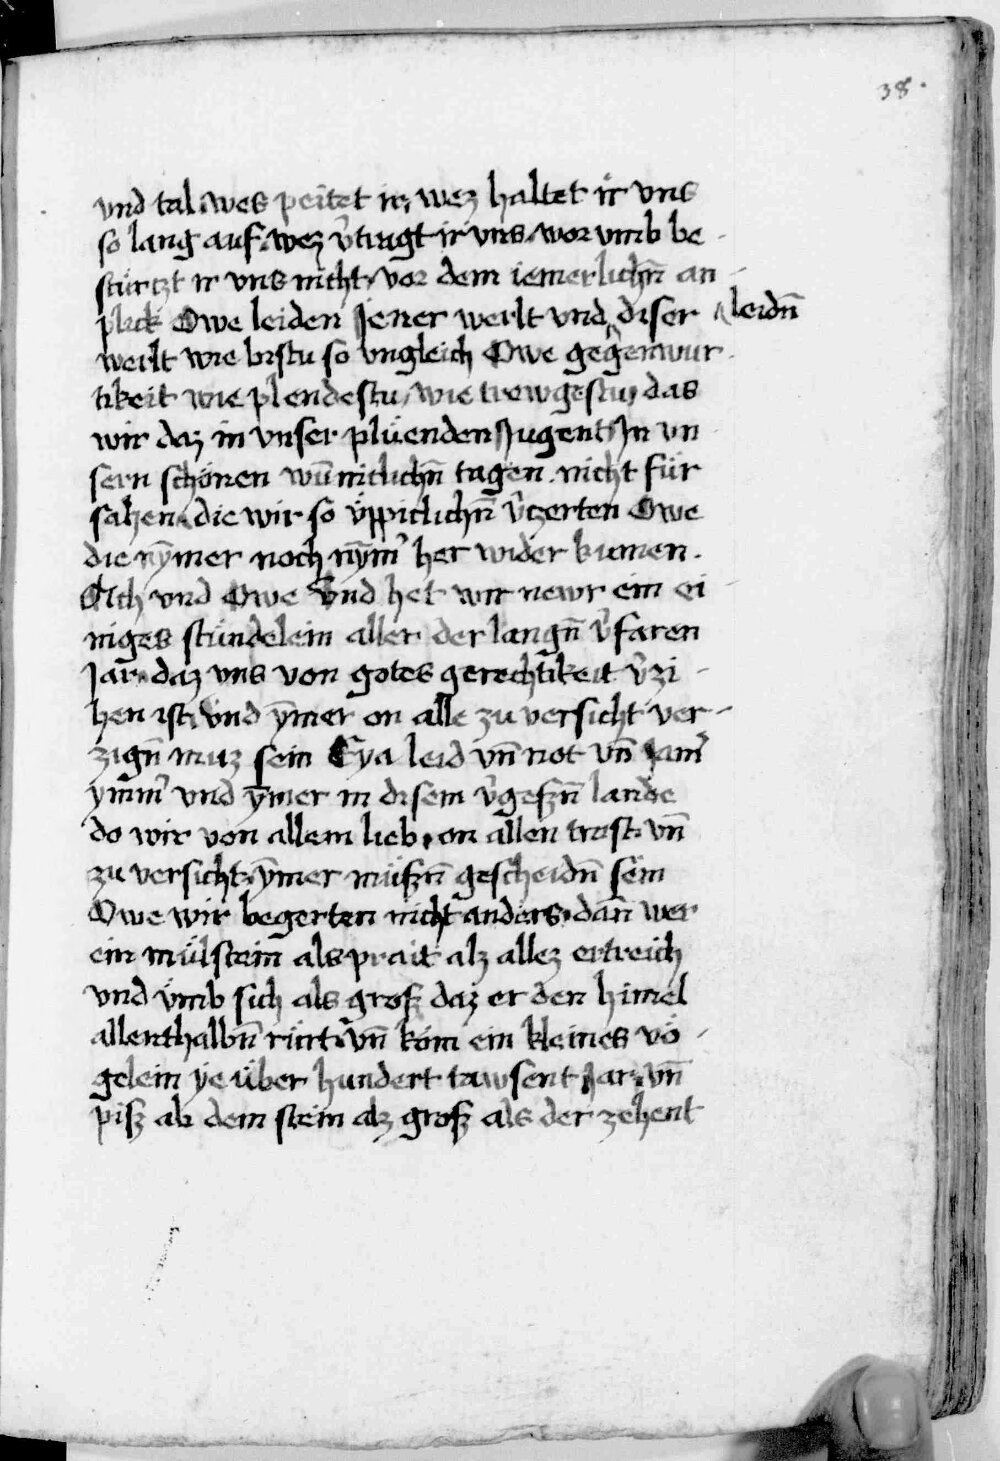 38.
vnd tal. wes peitet ir, wez haltet ir vns
so lang auf. wez v̉tragt ir vns. wor vmb be-
stürtzt ir vns nicht, vor dem iemerlichn̄ an-
plick Owe leiden Jener werlt vnd diser leidn̄
werlt wie bistu so vngleich Owe gegenwur-
tikeit wie plendestu, wie trewgestu, das
wir daz in vnser plüenden Jugent, Jn vn-
sern schönen wūniclichn̄ tagen. nicht für
sahen. die wir so üppiclichn̄ v̉tzerten Owe
die nȳmer noch nȳm̉ her wider kumen.
Ach vnd Owe Vnd het wir newr ein ei-
niges stündelein aller der langn̄ v̉faren
Jar. daz vns von gotes gerechtikeit v̉zi-
hen ist. vnd ȳmer on alle zu versicht ver-
zign̄ muz sein Eya leid vn̄ not vn̄ Jam̉
ymm̉ vnd ȳmer in disem v̉geszn̄ lande
do wir von allem lieb. on allen trost. vn̄
zu versicht. ȳmer müszn̄ gescheidn̄ sein
Owe wir begerten nicht anders. dan̄ wer
ein mülstein als prait alz allez ertreich
vnd ümb sich als grosz daz er den himel
allenthalbn̄ rürt. vn̄ köm ein kleines vö-
gelein ye über hundert tawsent Jar. vn̄
pisz ab dem stein alz grosz als der zehent